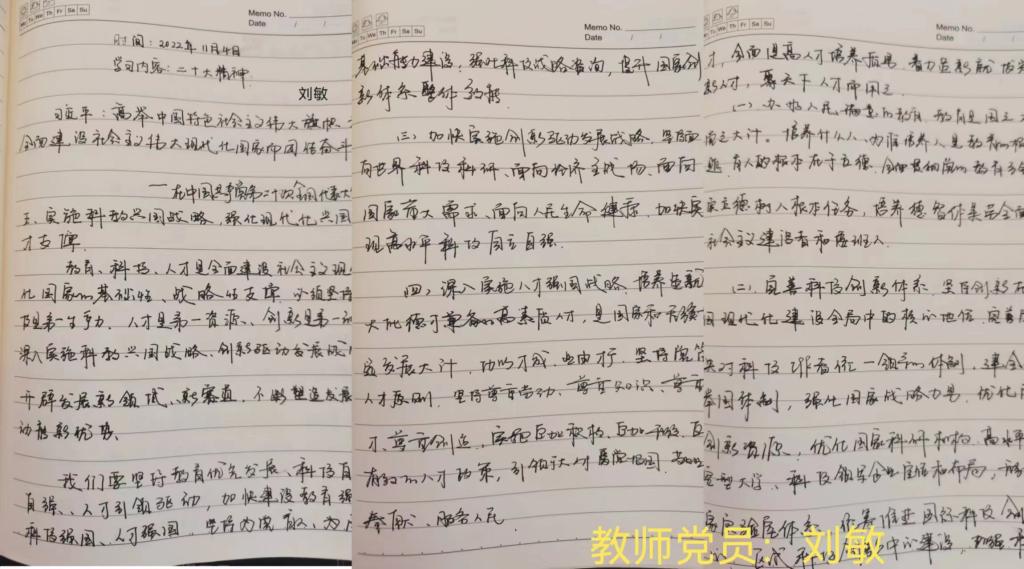 Memo No.
Mo Tu We Th Fr Sa Su
Date / /
时间：2022年11月4日
学习内容：二十大精神
刘敏
习近平：高举中国特色社会主义伟大旗帜
全面建设社会主义伟大现代化国家而团结奋斗
——在中国共产党第二十次全国代表大
五、实施科教兴国战略，强化现代化兴国
才支撑
教育、科技、人才是全面建设社会主义现
化国家的基础性、战略性支撑。必须坚持
技是第一生产力、人才是第一资源、创新是第一
深入实施科教兴国战略、创新驱动发展战
开辟发展新领域、新赛道，不断塑造发展
动能新优势。
我们要坚持教育优先发展、科技自
自强、人才引领驱动，加快建设教育强
科技强国、人才强国，坚持为党育人、为
Memo No.
Mo Tu We Th Fr Sa Su
Date / /
基础能力建设，强化科技战略咨询，提升国家创
新体系整体效能
三、加快实施创新驱动发展战略。坚持面
向世界科技科研、面向经济主战场、面向
国家重大需求、面向人民生命健康，加快实
现高水平科技自立自强
四、深入实施人才强国战略。培养造就
大批德才兼备的高素质人才，是国家和民族
发展大计，功以才成，业由才行。坚持党管
人才原则，坚持尊重劳动、尊重知识、尊重
才、尊重创造，实施更加积极、更加开放、更
有效的人才政策，引领
奉献、服务人民
Memo No.
Mo Tu We Th Fr Sa Su
Date / /
才，全面提高人才培养质量，着力造就拔尖
新人才，聚天下人才而用之
(一)、办好人民满意的教育。教育是国之大
党之大计。培养什么人、为谁培养人是教育的根
题，育人的根本在于立德。全面贯彻党的教育方
实立德树人根本任务，培养德智体美劳全面
社会主义建设者和接班人
(二)、完善科技创新体系。坚持创新在
国现代化建设全局中的核心地位。完善
央对科技工作统一领导的体制，健全
举国体制，强化国家战略力量，优化
创新资源，优化国家科研机构、高水平
究型大学、科技领军企业定位和布局，形
家实验室体系，
教师党员：刘敏